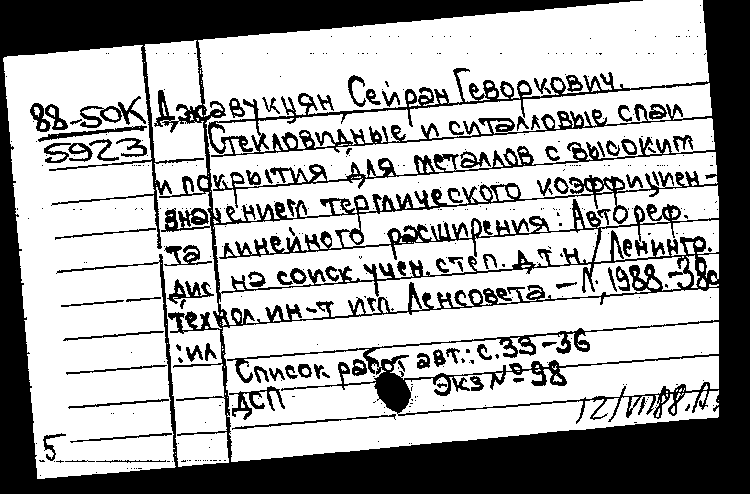 88-50К Джавукцян, Сейран Геворкович.
5923 Стекловидные и ситалловые спаи
и покрытия для металлов с высоким
значением термического коэффициен-
та линейного расширения: Автореф.
дис на соиск. учен. степ. д.т.н. / Ленингр.
технол. ин-т им. Ленсовета. – Л., 1988. – 38с
: ил
Список работ авт.: с. 33-36
ДСП Экз № 98
12/VII 88. А.
5